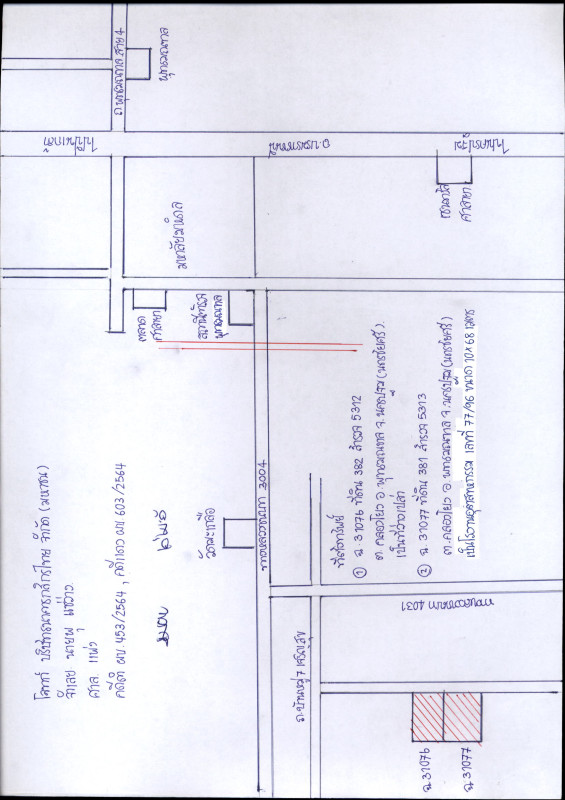 โจทก์ บริษัทธนาคารกสิกรไทย จำกัด (มหาชน)
จำเลย นายพู แซ่ว่าว
ศาล แพ่ง
คดีดำ ผบ 453/2564 , คดีแดง ผบ 603/2564
ถ.พุทธมณฑล สาย 4
พุทธมณฑล
ไปปิ่นเกล้า
ถ.บรมราชชนนี
ไปนครปฐม
มหาลัยมหิดล
ศาลายา
ตลาด
ศาลายา
สถานีตำรวจ
พุทธมณฑล
วัดมะเกลือ
ทางหลวงชนบท 3004
ที่ตั้งทรัพย์
① ฉ.31076 ที่ดิน 382 สำรวจ 5312
ต.คลองโยง อ.พุทธมณฑล จ.นครปฐม(นครชัยศรี).
เป็นที่ว่างเปล่า
② ฉ 31077 ที่ดิน 381 สำรวจ 5313
ต.คลองโยง อ.พุทธมณฑล จ.นครปฐม(นครชัยศรี)
เป็นโรงงานอุตสาหกรรม เลขที่ 77/96 ขนาด 10x68 เมตร
ทางหลวงชนบท 4031
ถ.บ้านหมู่ 7 เจริญสุข
ฉ.31076
ฉ.31077